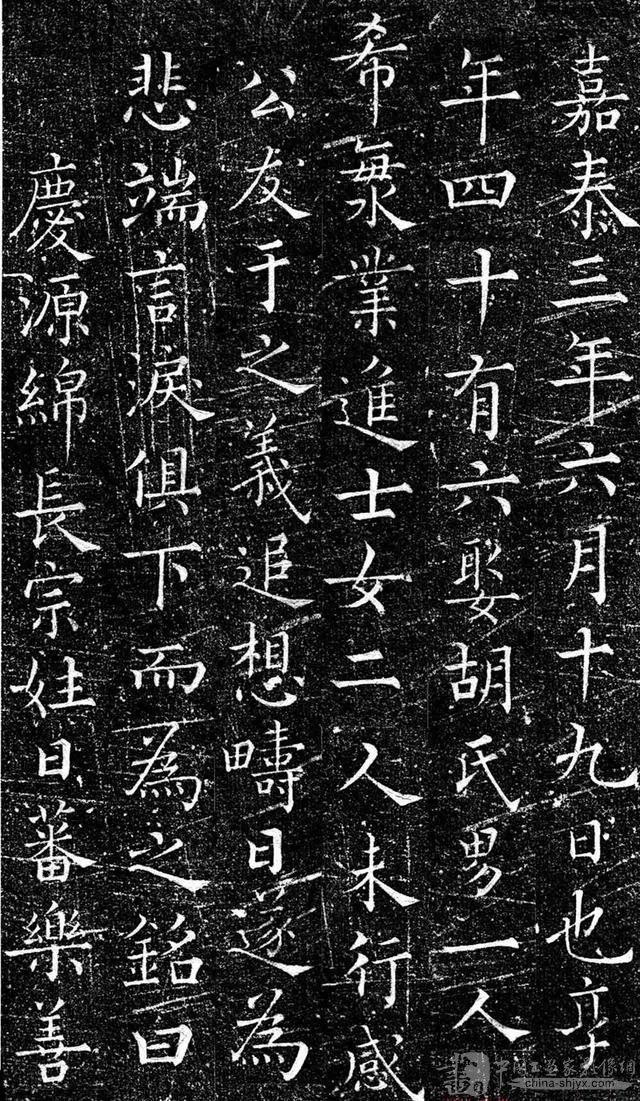 嘉泰三年六月十九日也享
年四十有六娶胡氏男一人
希業進士女二人未行感
公友于之義追想疇日遂為
悲端言淚俱下而為之銘曰
慶源綿長宗姓日蕃樂善
china-shjyx.com